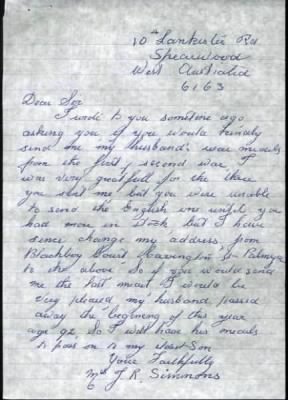 10 Lankester Rd
Spearwood
West Australia
6163
Dear Sir
I wrote to you sometime ago
asking you if you would kindly
send me my husband's war medals
from the first & second war, I
was very greatfull for the three
you sent me but you were unable
to send the English one until you
had more in Stock, but I have
sence change my address, from
Blackboy Court Carrington St Palmyra
to the above so if you would send
me the last medal I would be
very pleased, my husband passed
away the begening of this year
age 92 So I will have his medals
to pass on to my eldest Son
Your Faithfully
Mrs J. R. Simmons